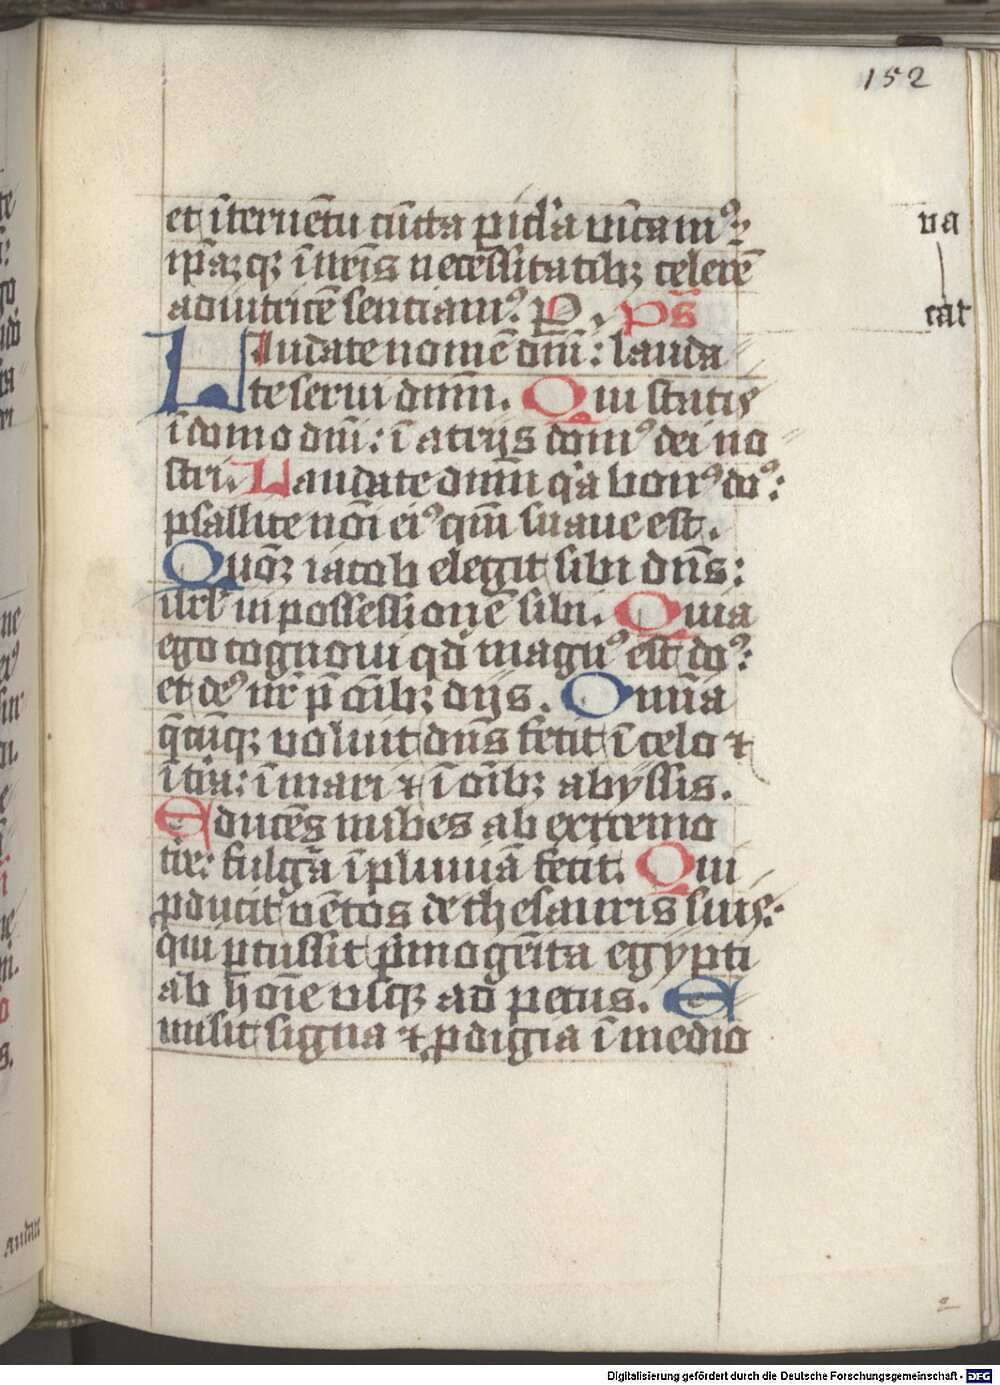 152
et īteruētu cūcta picl'a vīcamꝰ:
ip̄aꝫqꝫ ī nr̄is necessitatibꝫ celerē
adiutricē sentiamꝰ. P. ps̄
Laudate nomē dn̄i: lauda
te serui dn̄m. Qui statis
ī domo dn̄i: ī atrijs domꝰ dei no
stri. Laudate dn̄m q'a bonꝰ do᷒:
psallite nōi eiꝰ qm̄ suaue est.
Quōꝫ iacob elegit sibi dn̄s:
isrl' in possessionē sibi. Quia
ego cognoui qd̄ magnꝰ est do᷒:
et deꝰ nr̄ p̄ oībꝫ dijs. Omīa
q̄cūqꝫ voluit dn̄s fecit ī celo ⁊
ī tr̄a: ī mari ⁊ ī oībꝫ abyssis.
Educēs nubes ab extremo
tr̄e: fulgr̄a ī pluuiā fecit. Qui
ꝓducit vētos de thesauris suis:
qui ꝑcussit p̄mogēita egypti
ab hoīe vsqꝫ ad pecus. E
misit signa ⁊ ꝓdigia ī medio
va
cat
Digitalisierung gefördert durch die Deutsche Forschungsgemeinschaft - DFG